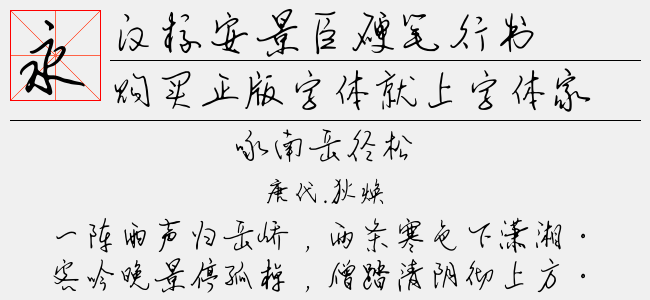 永
汉标安景臣硬笔行书
购买正版字体就上字体家
咏南岳径松
唐代.狄焕
一阵雨声归岳峤，两条寒色下潇湘.
客吟晚景停孤棹，僧踏清阴彻上方.